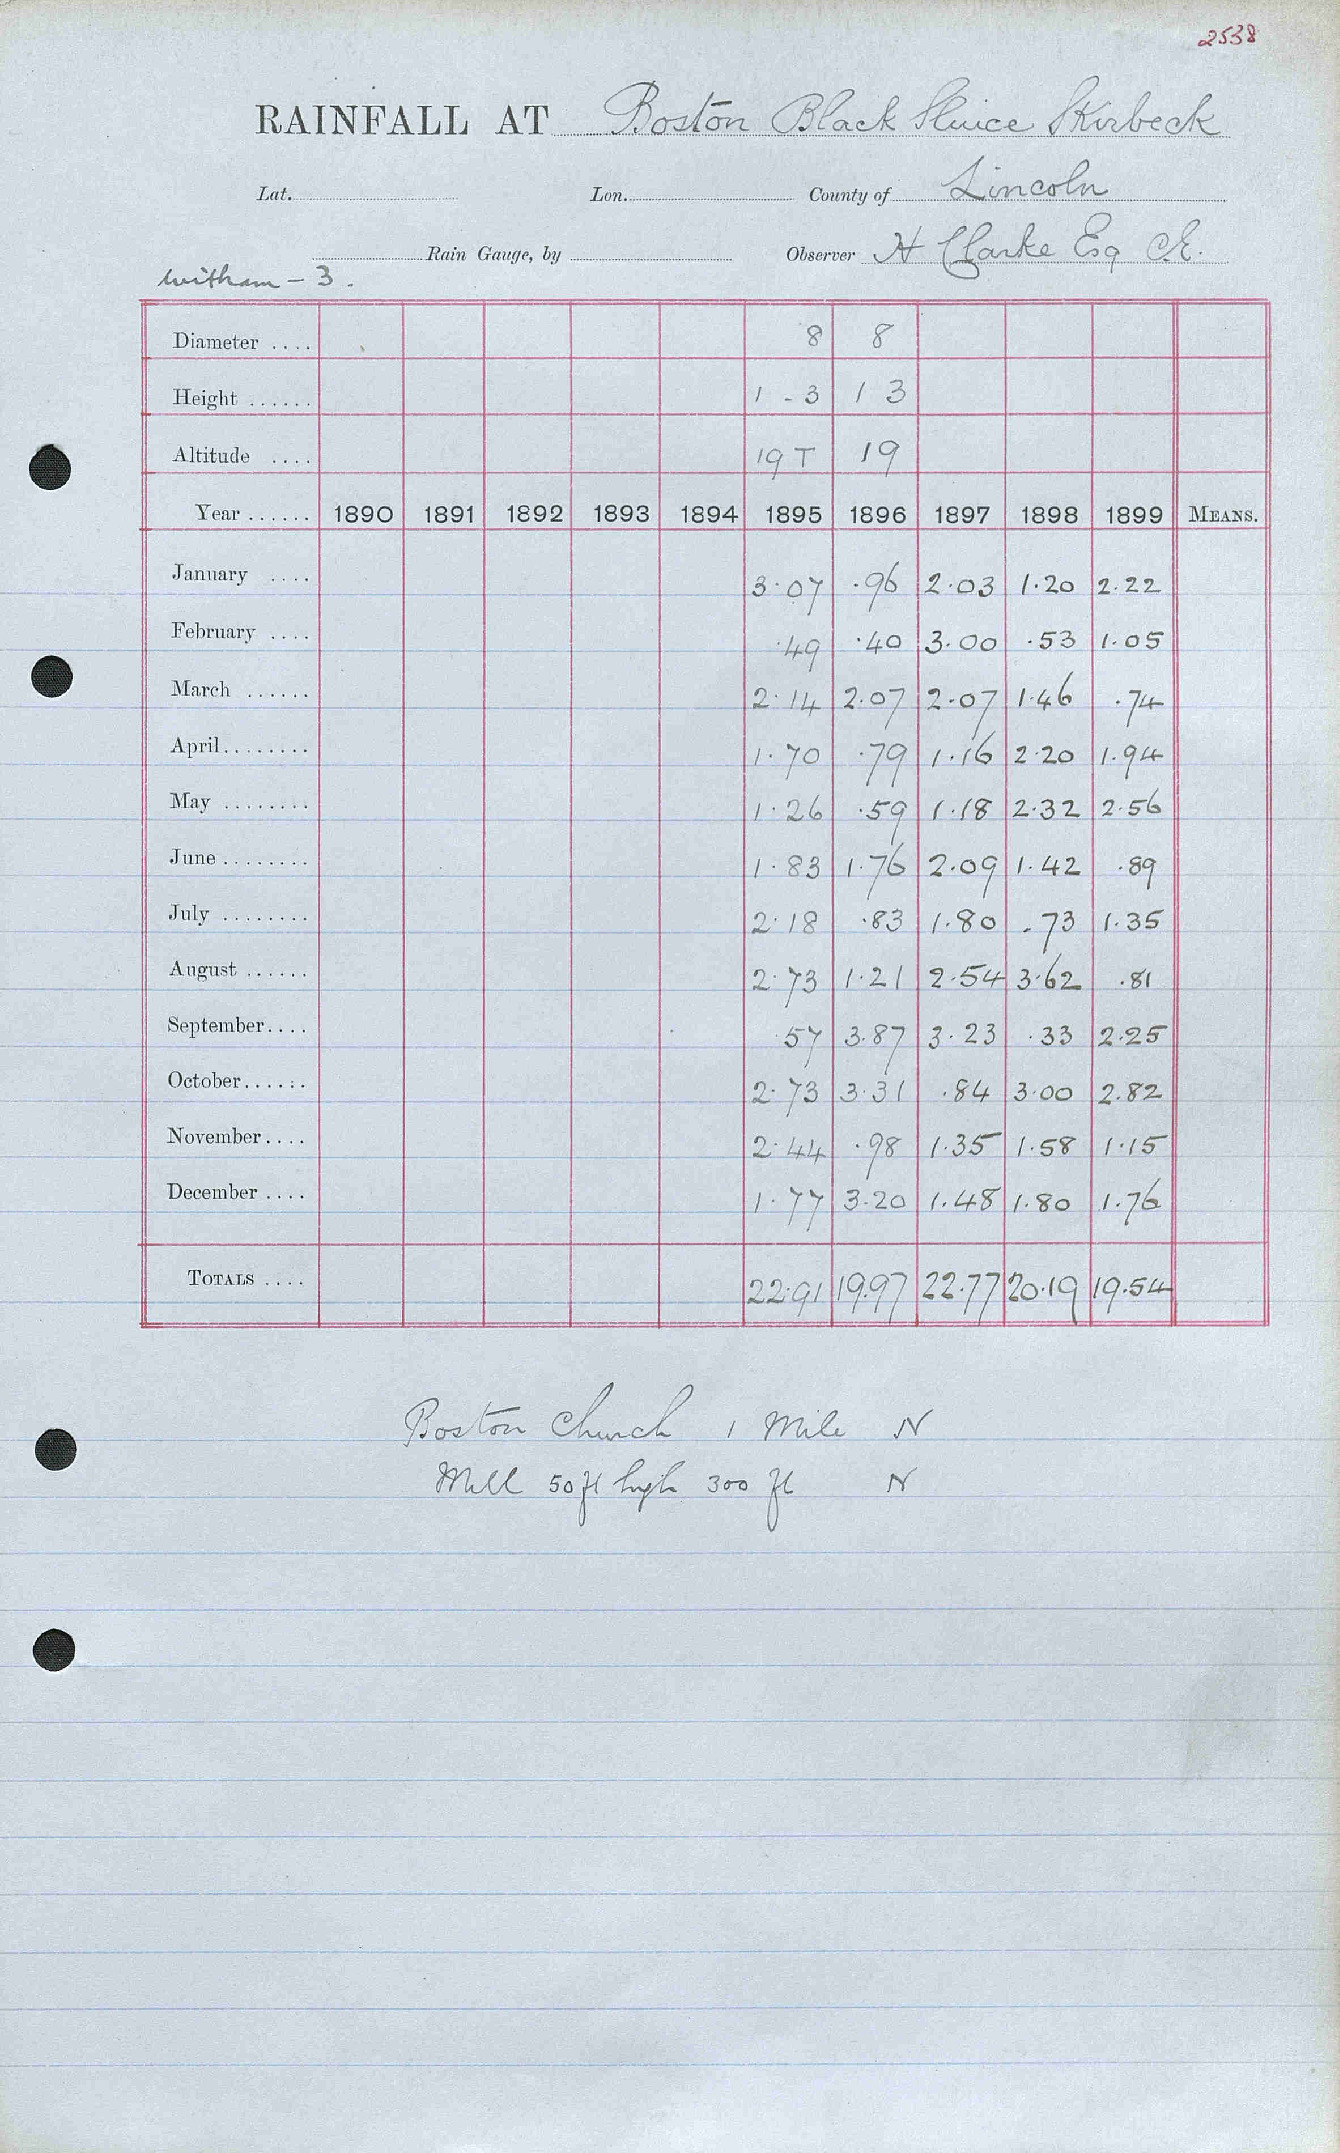 2538
RAINFALL AT Boston Black Sluice Skirbeck
Lat. Lon. County of Lincoln
Rain Gauge, by Observer H Clarke Esq C.E.
Witham - 3.
Diameter .... 8 8
Height ...... 1 - 3 1 3
Altitude .... 19 T 19
Year ...... 1890 1891 1892 1893 1894 1895 1896 1897 1898 1899 MEANS.
January .... 3.07 .96 2.03 1.20 2.22
February .... .49 .40 3.00 .53 1.05
March ...... 2.14 2.07 2.07 1.46 .74
April........ 1.70 .79 1.16 2.20 1.94
May ........ 1.26 .59 1.18 2.32 2.56
June ........ 1.83 1.76 2.09 1.42 .89
July ........ 2.18 .83 1.80 .73 1.35
August ...... 2.73 1.21 2.54 3.62 .81
September.... .57 3.87 3.23 .33 2.25
October...... 2.73 3.31 .84 3.00 2.82
November.... 2.44 .98 1.35 1.58 1.15
December .... 1.77 3.20 1.48 1.80 1.76
TOTALS .... 22.91 19.97 22.77 20.19 19.54
Boston Church 1 Mile N
Mill 50 ft high 300 ft N